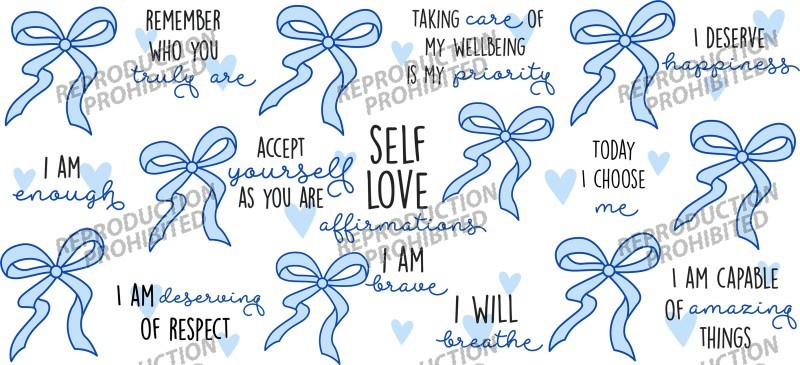 REMEMBER
WHO YOU
truly are
TAKING care OF
MY WELLBEING
IS MY priority
I DESERVE
happiness
I AM
enough
ACCEPT
yourself
AS YOU ARE
SELF
LOVE
affirmations
TODAY
I CHOOSE
me
I AM deserving
OF RESPECT
I AM
brave
I WILL
breathe
I AM CAPABLE
OF amazing
THINGS
REPRODUCTION
PROHIBITED
REPRODUCTION
PROHIBITED
REPRODUCTION
PROHIBITED
REPRODUCTION
PROHIBITED
REPRODUCTION
PROHIBITED
REPRODUCTION
PROHIBITED